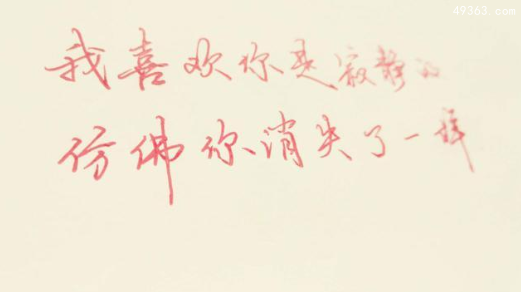 49363.com
我喜欢你是寂静的
仿佛你消失了一样